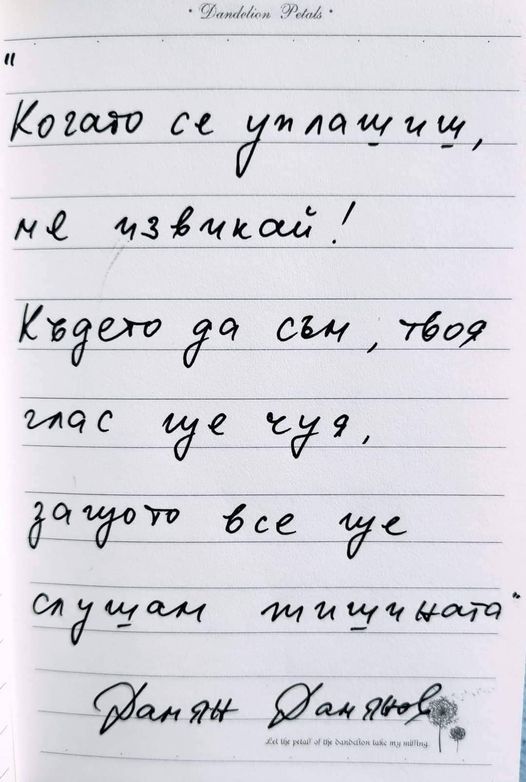 • Dandelion Petals •
"
Когато се уплашиш,
ме извикай!
Където да съм, твоя
глас ще чуя,
защото все ще
слушам тишината"
Дамян Дамянов
Let the petail of the dandelion take my miffing.